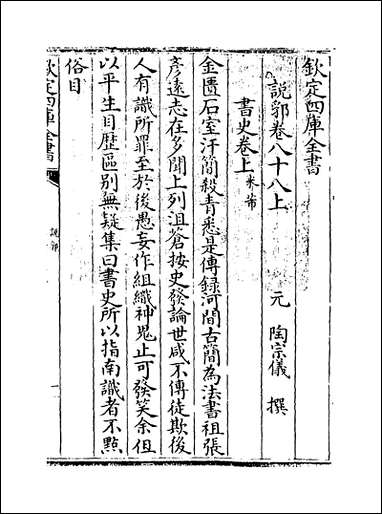 欽定四庫全書
說郛卷八十八上
元 陶宗儀 撰
書史卷上 米芾
金匱石室汗簡殺青悉是傳録河間古簡為法書祖張
彦遠志在多聞上列沮蒼按史發論世咸不傳徒欺後
人有識所罪至於後愚妄作組織神鬼止可發笑余但
以平生目歴區别無疑集曰書史所以指南識者不點
俗目
欽定四庫全書
說郛
一